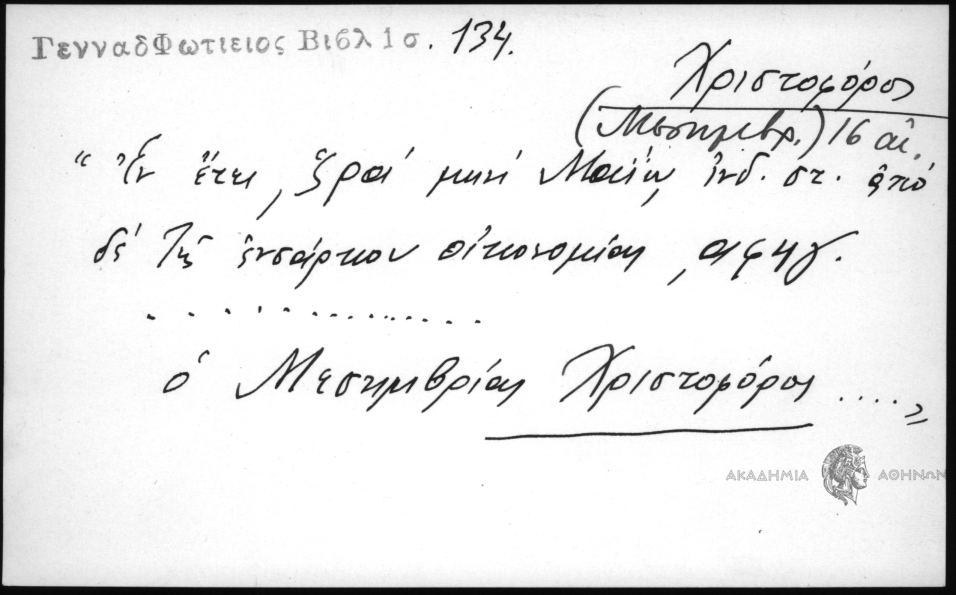 ΓενναδΦωτιειος Βιβλ 1 σ. 134.
Χριστοφόρος
(Μεσημβρ.) 16 αἰ.
“ Ἐν ἔτει ͵ζραʹ μηνὶ Μαΐῳ, ἰνδ. στ. ἀπὸ
δὲ τῆς ἐνσάρκου οἰκονομίας ͵αφηγ.
. . . . . . . . . . . . . . .
ὁ Μεσημβρίας Χριστοφόρος ....„
ΑΚΑΔΗΜΙΑ ΑΘΗΝΩΝ